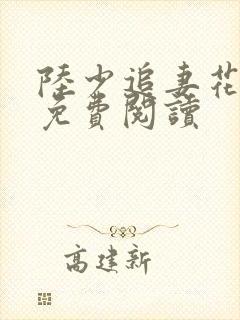 陸少追妻花
免費閱讀
高建新